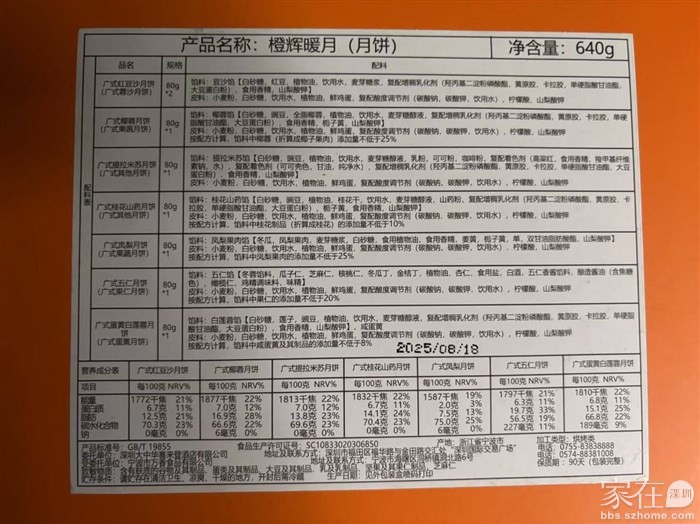 产品名称：橙辉暖月（月饼） 净含量：640g
品名 规格 配料
配料表
广式红豆沙月饼（广式蓉沙月饼） 80g*2
馅料：豆沙馅【白砂糖，红豆，植物油，饮用水，麦芽糖浆，复配增稠乳化剂（羟丙基二淀粉磷酸酯，黄原胶，卡拉胶，单硬脂酸甘油酯，
大豆蛋白粉），食用香精，山梨酸钾】
皮料：小麦粉，白砂糖，饮用水，植物油，鲜鸡蛋，复配酸度调节剂（碳酸钠，碳酸钾，饮用水），柠檬酸，山梨酸钾
广式椰蓉月饼（广式果蔬月饼） 80g*1
馅料：椰蓉馅【白砂糖，豌豆，全脂椰蓉，植物油，饮用水，麦芽糖醇液，复配增稠乳化剂（羟丙基二淀粉磷酸酯，黄原胶，卡拉胶，单硬
脂酸甘油酯，大豆蛋白粉），食用香精，栀子黄，山梨酸钾】
皮料：小麦粉，白砂糖，饮用水，植物油，鲜鸡蛋，复配酸度调节剂（碳酸钠，碳酸钾，饮用水），柠檬酸，山梨酸钾
按配方计算，馅料中椰蓉（折算成椰子果肉）添加量不低于25%
广式提拉米苏月饼（广式其他月饼） 80g*1
馅料：提拉米苏馅【白砂糖，豌豆，植物油，饮用水，麦芽糖醇液，乳粉，可可粉，咖啡粉，复配着色剂（高粱红，食用香精，羧甲基纤维
素钠，水），复配着色剂（可可壳色，甘油，纯净水），复配增稠乳化剂（羟丙基二淀粉磷酸酯，黄原胶，卡拉胶，单硬脂酸甘油酯，大豆
蛋白粉），食用香精，山梨酸钾】
皮料：小麦粉，白砂糖，饮用水，植物油，鲜鸡蛋，复配酸度调节剂（碳酸钠，碳酸钾，饮用水），柠檬酸，山梨酸钾
广式桂花山药月饼（广式其他月饼） 80g*1
馅料：桂花山药馅【白砂糖，豌豆，植物油，桂花干，饮用水，麦芽糖醇液，山药粉，复配增稠乳化剂（羟丙基二淀粉磷酸酯，黄原胶，卡
拉胶，单硬脂酸甘油酯，大豆蛋白粉），栀子黄，食用香精，山梨酸钾】
皮料：小麦粉，白砂糖，饮用水，植物油，鲜鸡蛋，复配酸度调节剂（碳酸钠，碳酸钾，饮用水），柠檬酸，山梨酸钾
按配方计算，馅料中桂花制品（折算成桂花）的添加量不低于10%
广式凤梨月饼（广式果蔬月饼） 80g*1
馅料：凤梨果肉馅【冬瓜，凤梨果肉，麦芽糖浆，白砂糖，食用植物油，食用香精，姜黄，栀子黄，单，双甘油脂肪酸酯，山梨酸钾】
皮料：小麦粉，白砂糖，饮用水，植物油，鲜鸡蛋，复配酸度调节剂（碳酸钠，碳酸钾，饮用水），柠檬酸，山梨酸钾
按配方计算，馅料中凤梨果肉的添加量不低于25%
广式五仁月饼（广式果仁月饼） 80g*1
馅料：五仁馅【冬蓉馅料，瓜子仁，芝麻仁，核桃仁，冬瓜丁，金桔丁，植物油，杏仁，食用盐，白酒，五仁香酱馅料，酿造酱油（含焦糖
色），橄榄仁，鸡精调味料，味精】
皮料：小麦粉，白砂糖，饮用水，植物油，鲜鸡蛋，复配酸度调节剂（碳酸钠，碳酸钾，饮用水），柠檬酸，山梨酸钾
按配方计算，馅料中果仁的添加量不低于20%
广式蛋黄白莲蓉月饼（广式蛋黄月饼） 80g*1
馅料：白莲蓉馅【白砂糖，莲子，豌豆，植物油，饮用水，麦芽糖醇液，复配增稠乳化剂（羟丙基二淀粉磷酸酯，黄原胶，卡拉胶，单硬脂
酸甘油酯，大豆蛋白粉），食用香精，山梨酸钾】，咸蛋黄
皮料：小麦粉，白砂糖，饮用水，植物油，鲜鸡蛋，复配酸度调节剂（碳酸钠，碳酸钾，饮用水），柠檬酸，山梨酸钾
按配方计算，馅料中咸蛋黄及其制品的添加量不低于8%
2025/08/18
营养成分表 广式红豆沙月饼 广式椰蓉月饼 广式提拉米苏月饼 广式桂花山药月饼 广式凤梨月饼 广式五仁月饼 广式蛋黄白莲蓉月饼
项目 每100克 NRV% 每100克 NRV% 每100克 NRV% 每100克 NRV% 每100克 NRV% 每100克 NRV% 每100克 NRV%
能量 1772千焦 21% 1877千焦 22% 1813千焦 22% 1832千焦 22% 1587千焦 19% 1797千焦 21% 1810千焦 22%
蛋白质 6.7克 11% 7.0克 12% 7.0克 12% 6.7克 11% 2.0克 3% 6.3克 11% 6.8克 11%
脂肪 12.5克 21% 16.9克 28% 13.8克 23% 14.1克 24% 7.5克 13% 19.7克 33% 15.1克 25%
碳水化合物 70.3克 23% 66.6克 22% 69.6克 23% 70.4克 23% 75.0克 25% 56.5克 19% 66.8克 22%
钠 0毫克 0% 6毫克 0% 0毫克 0% 0毫克 0% 0毫克 0% 227毫克 11% 189毫克 9%
产品标准号：GB/T 19855 食品生产许可证号：SC10833020306850 产地：浙江省宁波市 加工类型：烘烤类
委托单位：深圳大中华喜来登酒店有限公司 地址及联系方式：深圳市福田区福华路与金田路交汇处“深圳国际交易广场” 电话：0755-83838888
受委托单位：宁波市方香食品有限公司 地址及联系方式：宁波市海曙区洞桥镇洞北路6号 电话：0574-88381008
致敏物质：含有麸质的谷物及其制品，蛋类及其制品，大豆及其制品，乳及乳制品，坚果及果仁制品，芝麻仁 保质期：90天（包装完整）
贮存条件：请贮存在清洁卫生、凉爽、干燥的地方，开封后需冷藏 生产日期：见外包装盒喷码打印
家在深圳
bbs.szhome.com